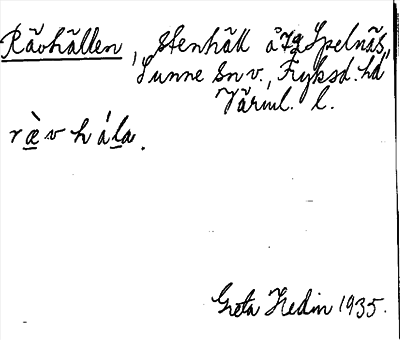 Rävhällen, stenhäll å Äg Spelnäs,
Sunne sn v., Fryksd. hd
Värml. l.
rævhála.
Greta Hedin 1935.